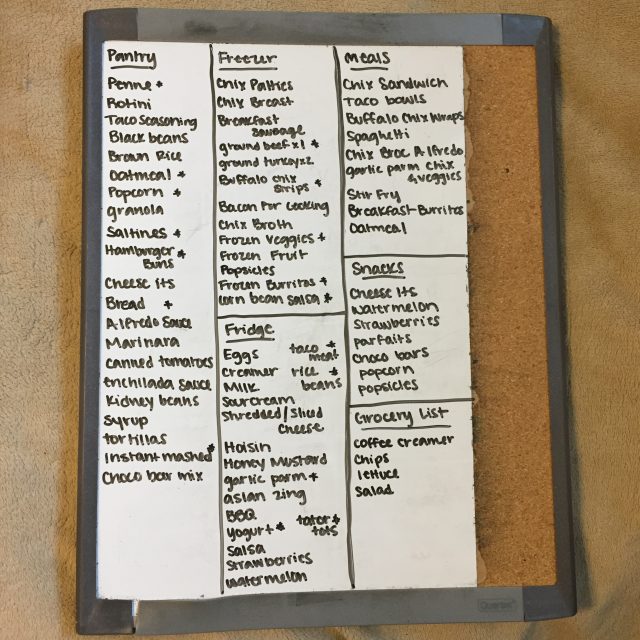 Pantry
Penne *
Rotini
Taco seasoning
Black beans
Brown Rice
Oatmeal *
Popcorn *
granola
Saltines *
Hamburger Buns *
Cheese Its
Bread *
Alfredo Sauce
Marinara
canned tomatoes
enchilada sauce
Kidney beans
Syrup
tortillas
Instant mashed *
Choco bar mix
Freezer
Chix Patties
Chix Breast
Breakfast
Sausage
ground beef x1 *
ground turkey x2
Buffalo chix
strips *
Bacon For Cooking
Chix Broth
Frozen Veggies *
Frozen Fruit
Popsicles
Frozen Burritos *
corn bean salsa *
Fridge
Eggs taco *
meat
Creamer rice *
Milk beans
Sour cream
Shredded/Sliced
Cheese
Hoisin
Honey Mustard
garlic parm *
asian zing
BBQ
Yogurt * tator *
tots
Salsa
Strawberries
watermelon
Meals
Chix Sandwich
Taco bowls
Buffalo Chix Wraps
Spaghetti
Chix Broc Alfredo
garlic parm Chix
& veggies
Stir Fry
Breakfast Burritos
Oatmeal
Snacks
Cheese Its
watermelon
Strawberries
parfaits
Choco bars
popcorn
popsicles
Grocery List
coffee creamer
Chips
lettuce
Salad
Quartet